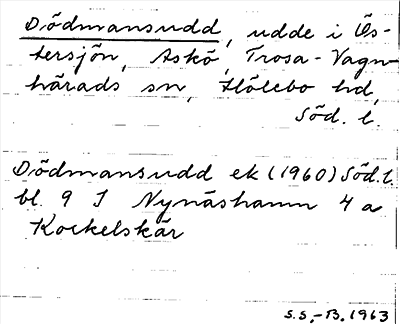 Dödmansudd, udde i Ös-
tersjön, Askö, Trosa-Vagn-
härads sn, Hölebo hd,
Söd. l.
Dödmansudd ek (1960) Söd. l.
bl. 9 I Nynäshamn 4 a
Kockelskär
S.S.-B. 1963